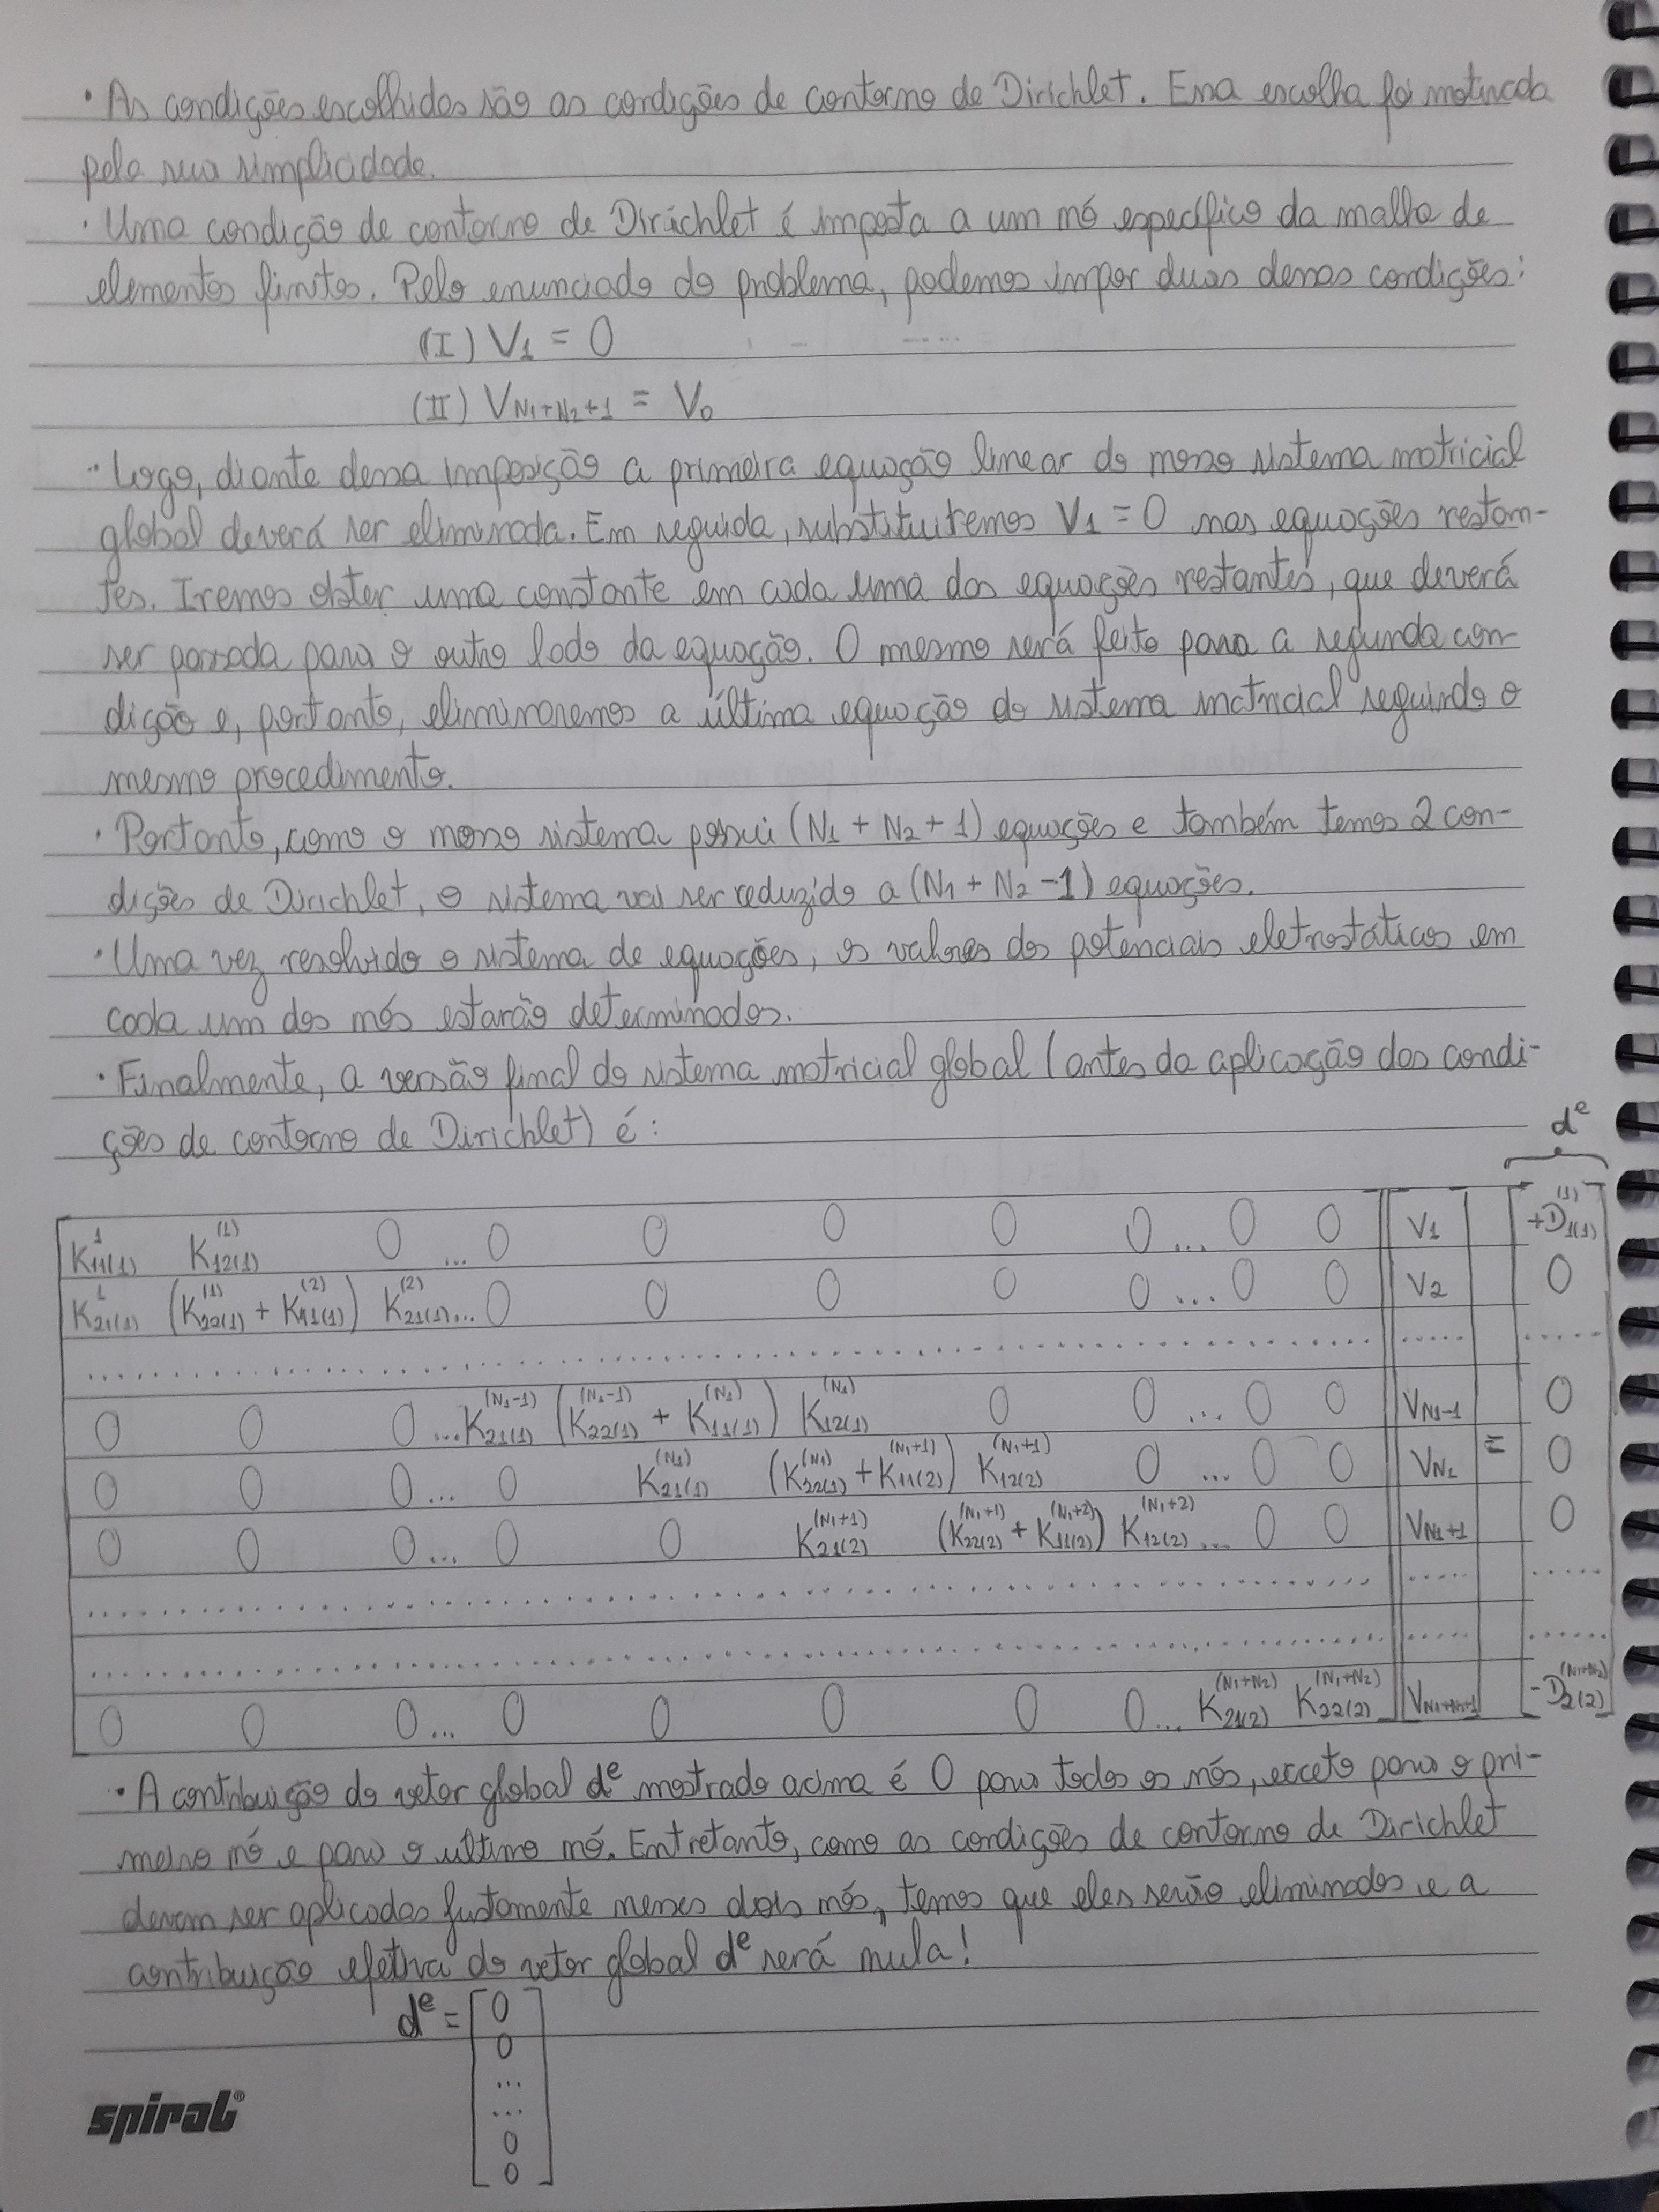 · As condições escolhidas são as condições de contorno de Dirichlet. Essa escolha foi motivada
pela sua simplicidade.
· Uma condição de contorno de Dirichlet é imposta a um nó específico da malha de
elementos finitos. Pelo enunciado do problema, podemos impor duas dessas condições:
(I) V₁ = 0
(II) V_{N₁+N₂+1} = V₀
· Logo, diante dessa imposição a primeira equação linear do nosso sistema matricial
global deverá ser eliminada. Em seguida, substituiremos V₁ = 0 nas equações restan-
tes. Iremos obter uma constante em cada uma das equações restantes, que deverá
ser passada para o outro lado da equação. O mesmo será feito para a segunda con-
dição e, portanto, eliminaremos a última equação do sistema matricial seguindo o
mesmo procedimento.
· Portanto, como o nosso sistema possui (N₁ + N₂ + 1) equações e também temos 2 con-
dições de Dirichlet, o sistema vai ser reduzido a (N₁ + N₂ - 1) equações.
· Uma vez resolvido o sistema de equações, os valores dos potenciais eletrostáticos em
cada um dos nós estarão determinados.
· Finalmente, a versão final do sistema matricial global (antes da aplicação das condi-
ções de contorno de Dirichlet) é:
dᵉ
K_{11(1)}^{1} K_{12(1)}^{(1)} 0 ... 0 0 0 0 0 ... 0 0 V₁ +D_{1(1)}^{(1)}
K_{21(1)}^{1} (K_{22(1)}^{(1)} + K_{11(1)}^{(2)}) K_{21(1)}^{(2)} ... 0 0 0 0 0 ... 0 0 V₂ 0
..... ..... .....
0 0 0 ... K_{21(1)}^{(N₁-1)} (K_{22(1)}^{(N₁-1)} + K_{11(1)}^{(N₁)}) K_{12(1)}^{(N₁)} 0 0 ... 0 0 V_{N₁-1} 0
0 0 0 ... 0 K_{21(1)}^{(N₁)} (K_{22(1)}^{(N₁)} + K_{11(2)}^{(N₁+1)}) K_{12(2)}^{(N₁+1)} 0 ... 0 0 V_{N₁} = 0
0 0 0 ... 0 0 K_{21(2)}^{(N₁+1)} (K_{22(2)}^{(N₁+1)} + K_{11(2)}^{(N₁+2)}) K_{12(2)}^{(N₁+2)} ... 0 0 V_{N₁+1} 0
..... ..... .....
..... ..... .....
0 0 0 ... 0 0 0 0 0 ... K_{21(2)}^{(N₁+N₂)} K_{22(2)}^{(N₁+N₂)} V_{N₁+N₂+1} -D_{2(2)}^{(N₁+N₂)}
· A contribuição do vetor global dᵉ mostrado acima é 0 para todos os nós, exceto para o pri-
meiro nó e para o ultimo nó. Entretanto, como as condições de contorno de Dirichlet
devem ser aplicadas justamente nesses dois nós, temos que eles serão eliminados e a
contribuição efetiva do vetor global dᵉ será nula!
dᵉ = [0
0
...
...
0
0]
spiral®